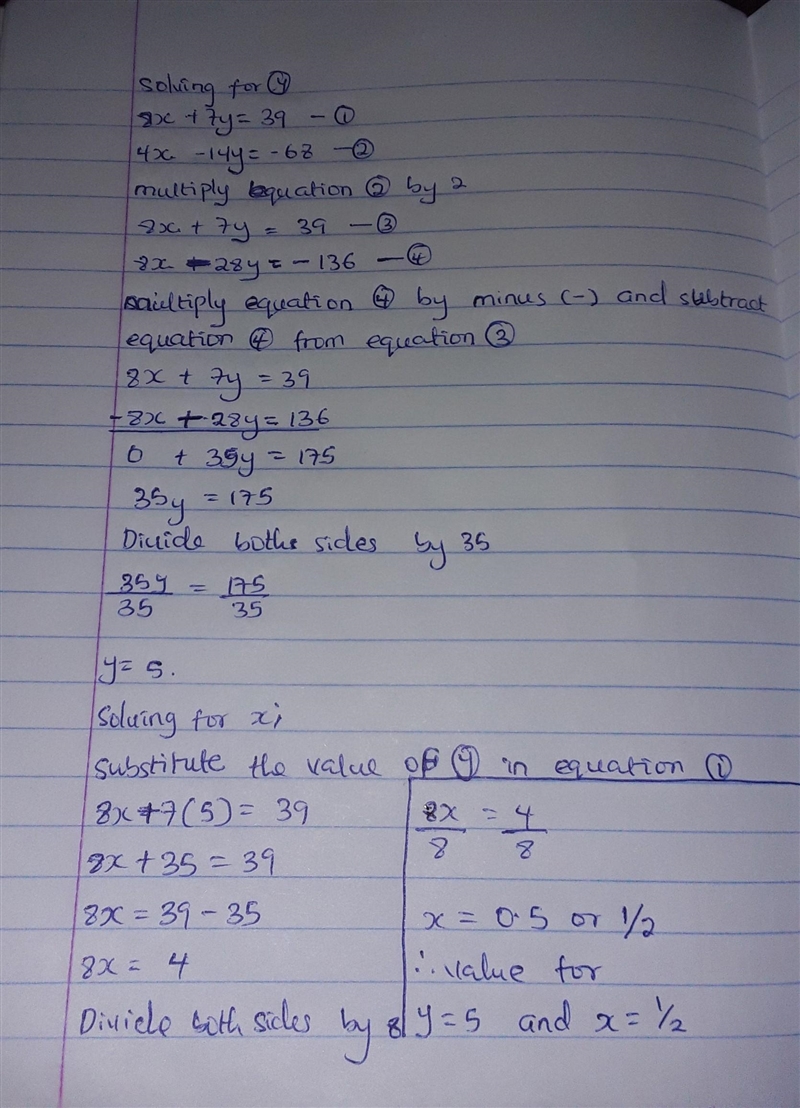 Solving for ⓨ
8x + 7y = 39 - ①
4x - 14y = -68 - ②
multiply equation ② by 2
8x + 7y = 39 - ③
8x - 28y = - 136 - ④
multiply equation ④ by minus (-) and subtract
equation ④ from equation ③
8x + 7y = 39
-8x + 28y = 136
0 + 35y = 175
35y = 175
Divide boths sides by 35
35y/35 = 175/35
y = 5.
Solving for x;
substitute the value of ⓨ in equation ①
8x + 7(5) = 39
8x + 35 = 39
8x = 39 - 35
8x = 4
Divide both sides by 8
8x/8 = 4/8
x = 0.5 or 1/2
∴ value for
y = 5 and x = 1/2